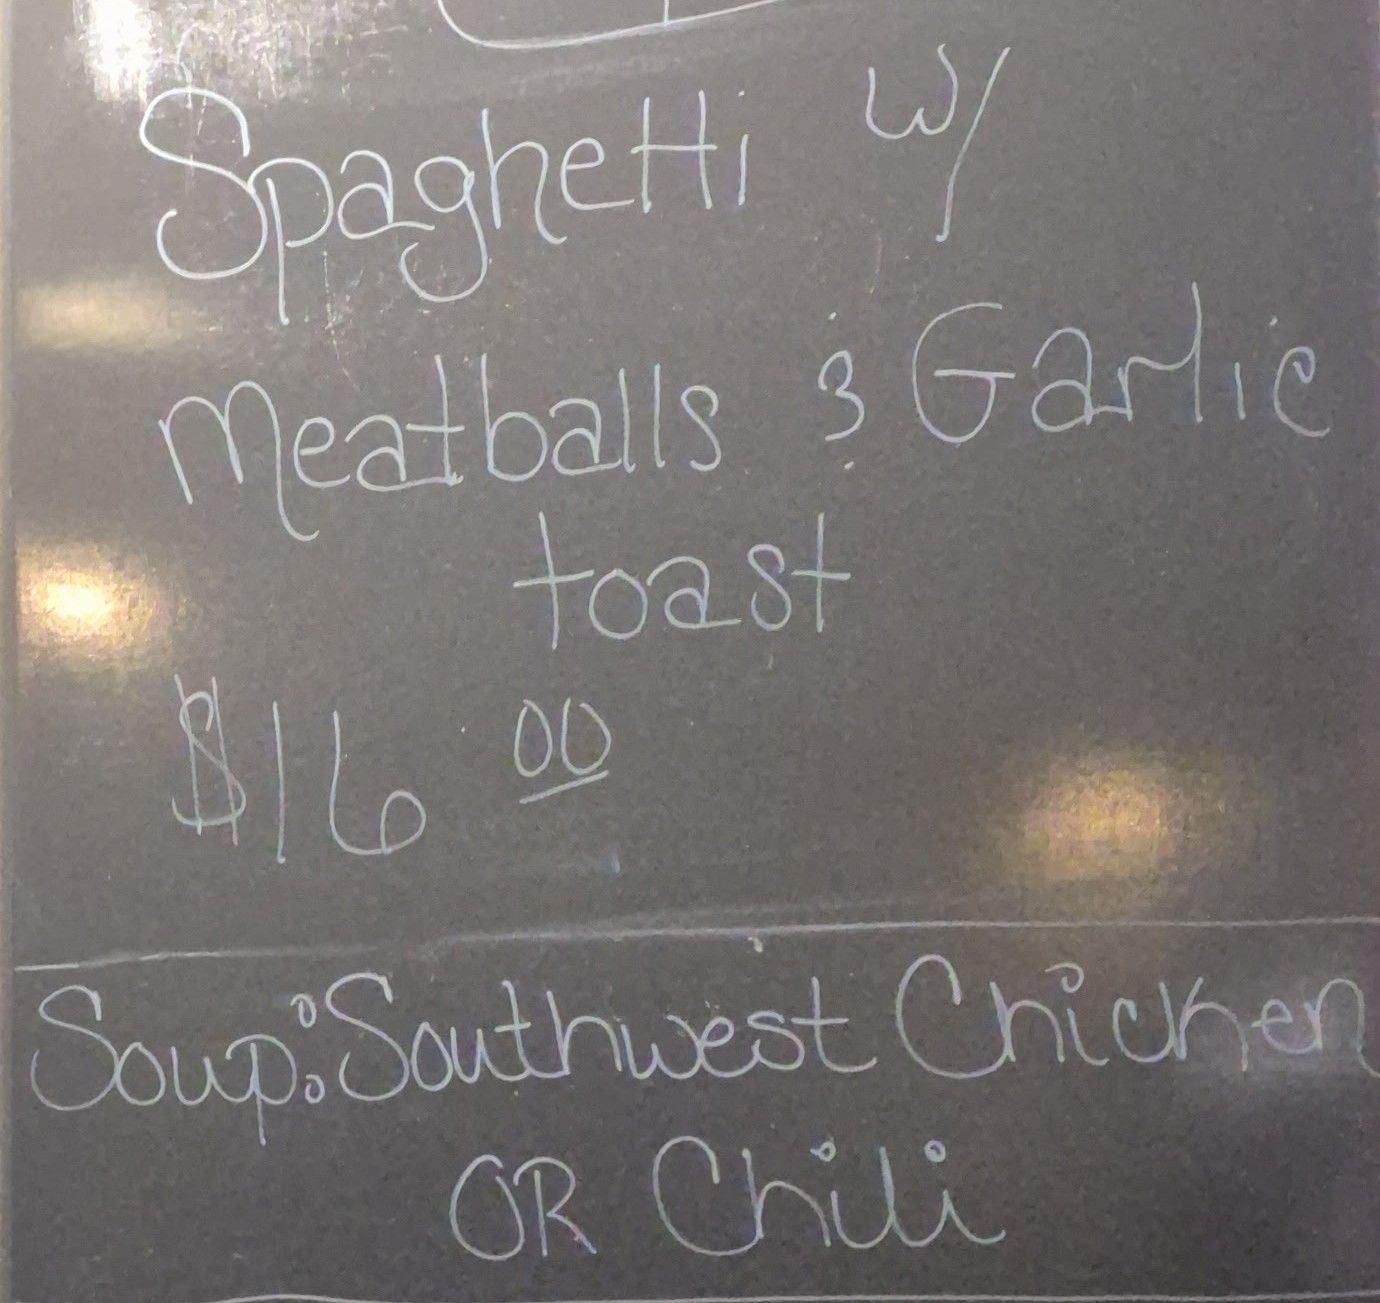 Spaghetti w/
Meatballs & Garlic
toast
$16 00
Soup: Southwest Chicken
OR Chili